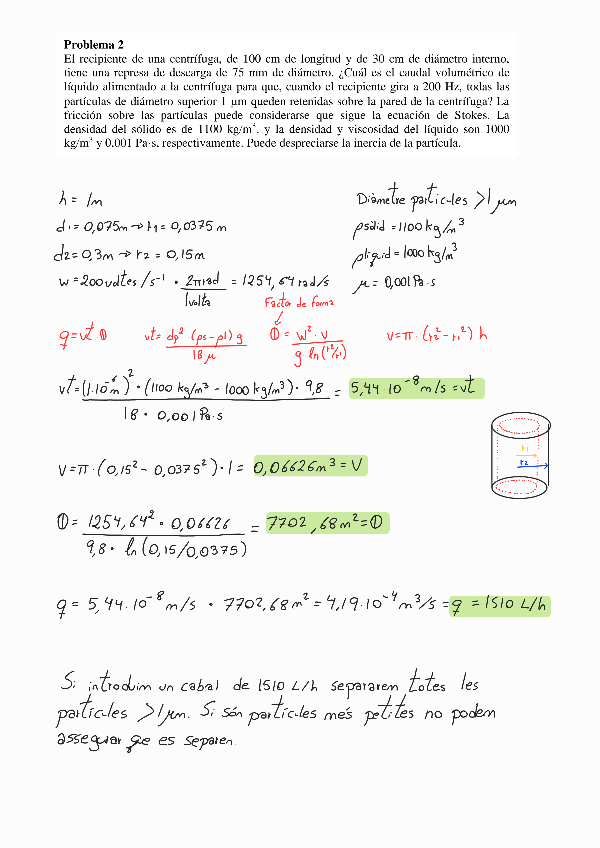 Problema 2
El recipiente de una centrífuga, de 100 cm de longitud y de 30 cm de diámetro interno,
tiene una represa de descarga de 75 mm de diámetro. ¿Cuál es el caudal volumétrico de
líquido alimentado a la centrífuga para que, cuando el recipiente gira a 200 Hz, todas las
partículas de diámetro superior 1 µm queden retenidas sobre la pared de la centrífuga? La
fricción sobre las partículas puede considerarse que sigue la ecuación de Stokes. La
densidad del sólido es de 1100 kg/m³, y la densidad y viscosidad del líquido son 1000
kg/m³ y 0.001 Pa·s, respectivamente. Puede despreciarse la inercia de la partícula.
h = 1m
Diàmetre partícules >1 µm
d1 = 0,075m → r1 = 0,0375 m
ρsòlid = 1100 kg/m³
d2 = 0,3m → r2 = 0,15m
ρliquid = 1000 kg/m³
w = 200 voltes/s⁻¹ · 2πrad / 1volta = 1254,64 rad/s
µ = 0,001 Pa·s
Factor de forma
q = vt · Φ vt = dp² · (ρs - ρl) g / 18·µ Φ = w² · V / g ln (r2/r1) V = π · (r2² - r1²) h
vt = (1·10⁻⁶ m)² · (1100 kg/m³ - 1000 kg/m³) · 9,8 / 18 · 0,001 Pa·s = 5,44·10⁻⁸ m/s = vt
r1
r2
V = π · (0,15² - 0,0375²) · 1 = 0,06626 m³ = V
Φ = 1254,64² · 0,06626 / 9,8 · ln (0,15/0,0375) = 7702,68 m² = Φ
q = 5,44·10⁻⁸ m/s · 7702,68 m² = 4,19·10⁻⁴ m³/s = q = 1510 L/h
Si introduim un cabal de 1510 L/h separarem totes les
partícules >1 µm. Si són partícules més petites no podem
assegurar que es separen.